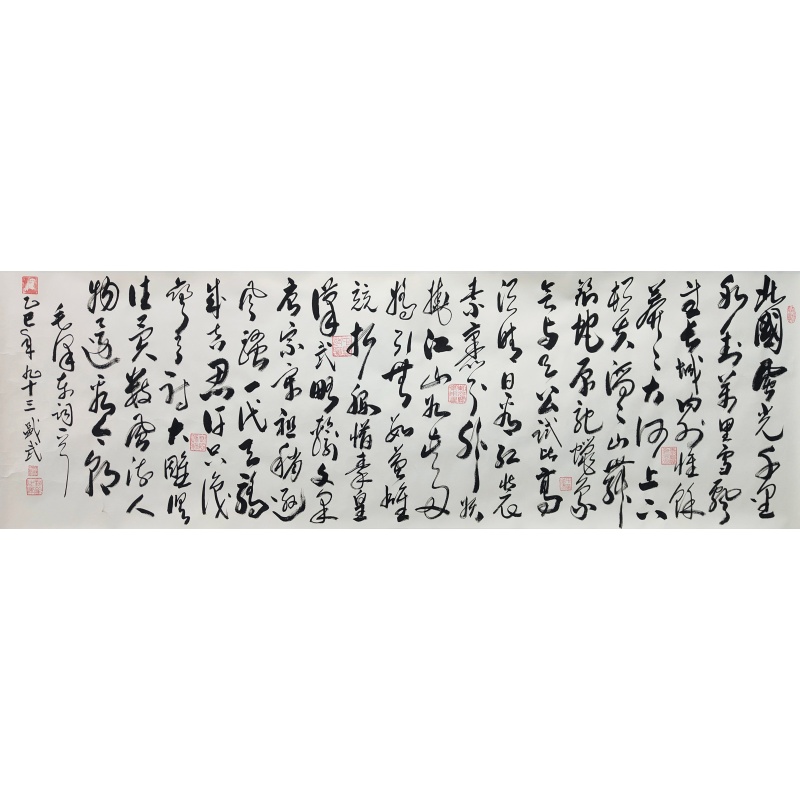 北國風光千里
冰封萬里雪飄
望長城内外惟餘
莽〻大河上下
頓失滔〻山舞
銀蛇原馳蠟象
欲與天公試比高
須晴日看紅裝
素裹分外妖
嬈江山如此多
嬌引無數英雄
競折腰惜秦皇
漢武略輸文采
唐宗宋祖稍遜
風騷一代天驕
成吉思汗只識
彎弓射大雕俱
往矣數風流人
物還看今朝
毛澤東詞一首
乙巳年九十三